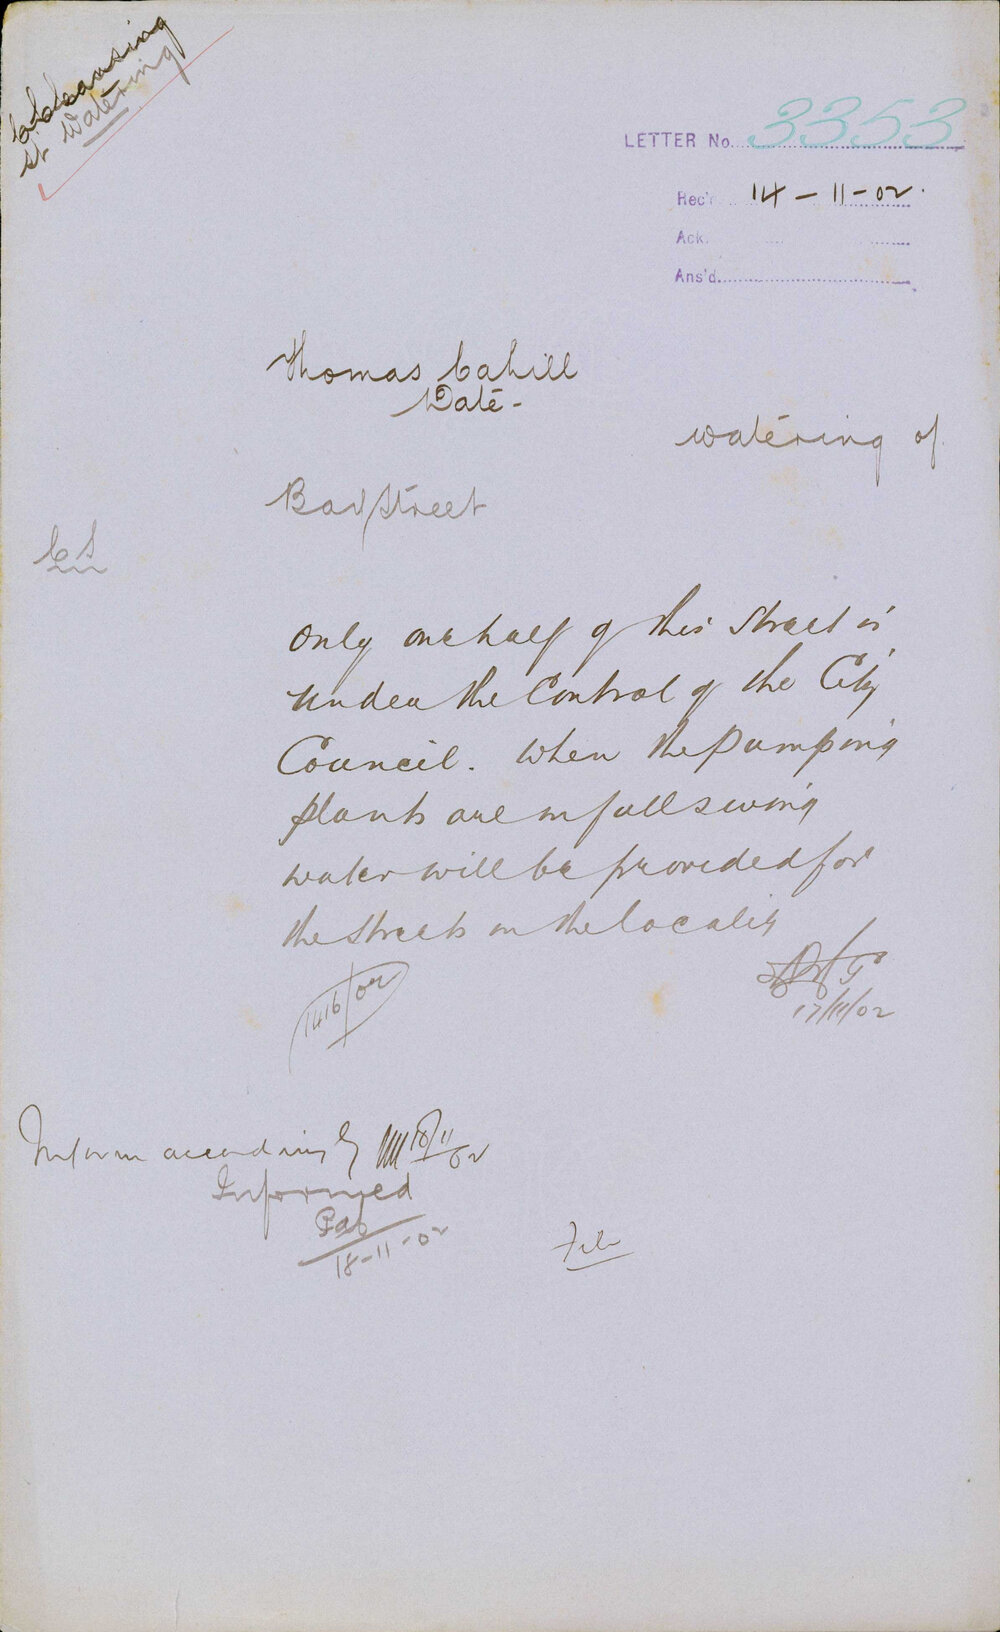 Cleansing
St Watering
LETTER No. 3353
Rec'd 14-11-02.
Ack.
Ans'd.
Thomas Cahill
Date -
Watering of
Street
CS
Only one half of this Street is
under the Control of the City
Council. When the Pumping
plants are in full swing
water will be provided for
the streets in the locality
17/11/02
1416/02
Inform accordingly 18/11/02
Informed
18-11-02
File